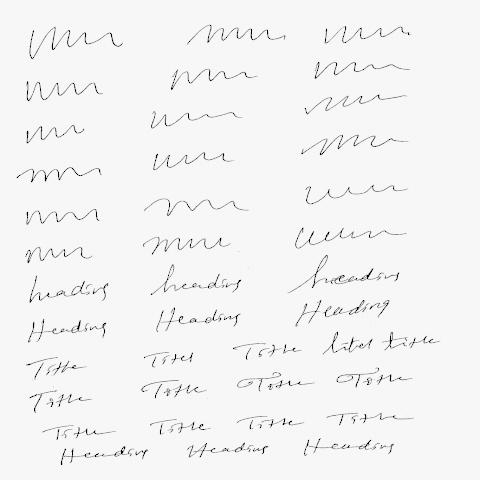 heading heading heading
Heading Heading Heading
Title Titel Title titel title
Title Title Title Title
Title Title Title Title
Heading Heading Heading